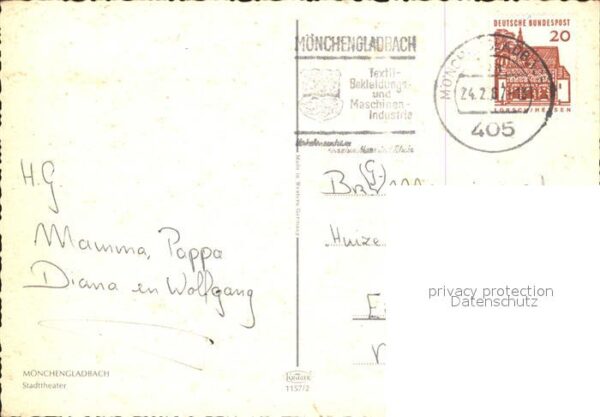 MÖNCHENGLADBACH
Textil-
Bekleidungs-
und
Maschinen-
Industrie
DEUTSCHE BUNDESPOST
20
LORSCH/HESSEN
24.2.67
405
H.G.
Mamma, Pappa
Diana en Wolfgang
Huize
privacy protection
Datenschutz
Made in Western Germany
MÖNCHENGLADBACH
Stadttheater
KRÜGER
1157/2